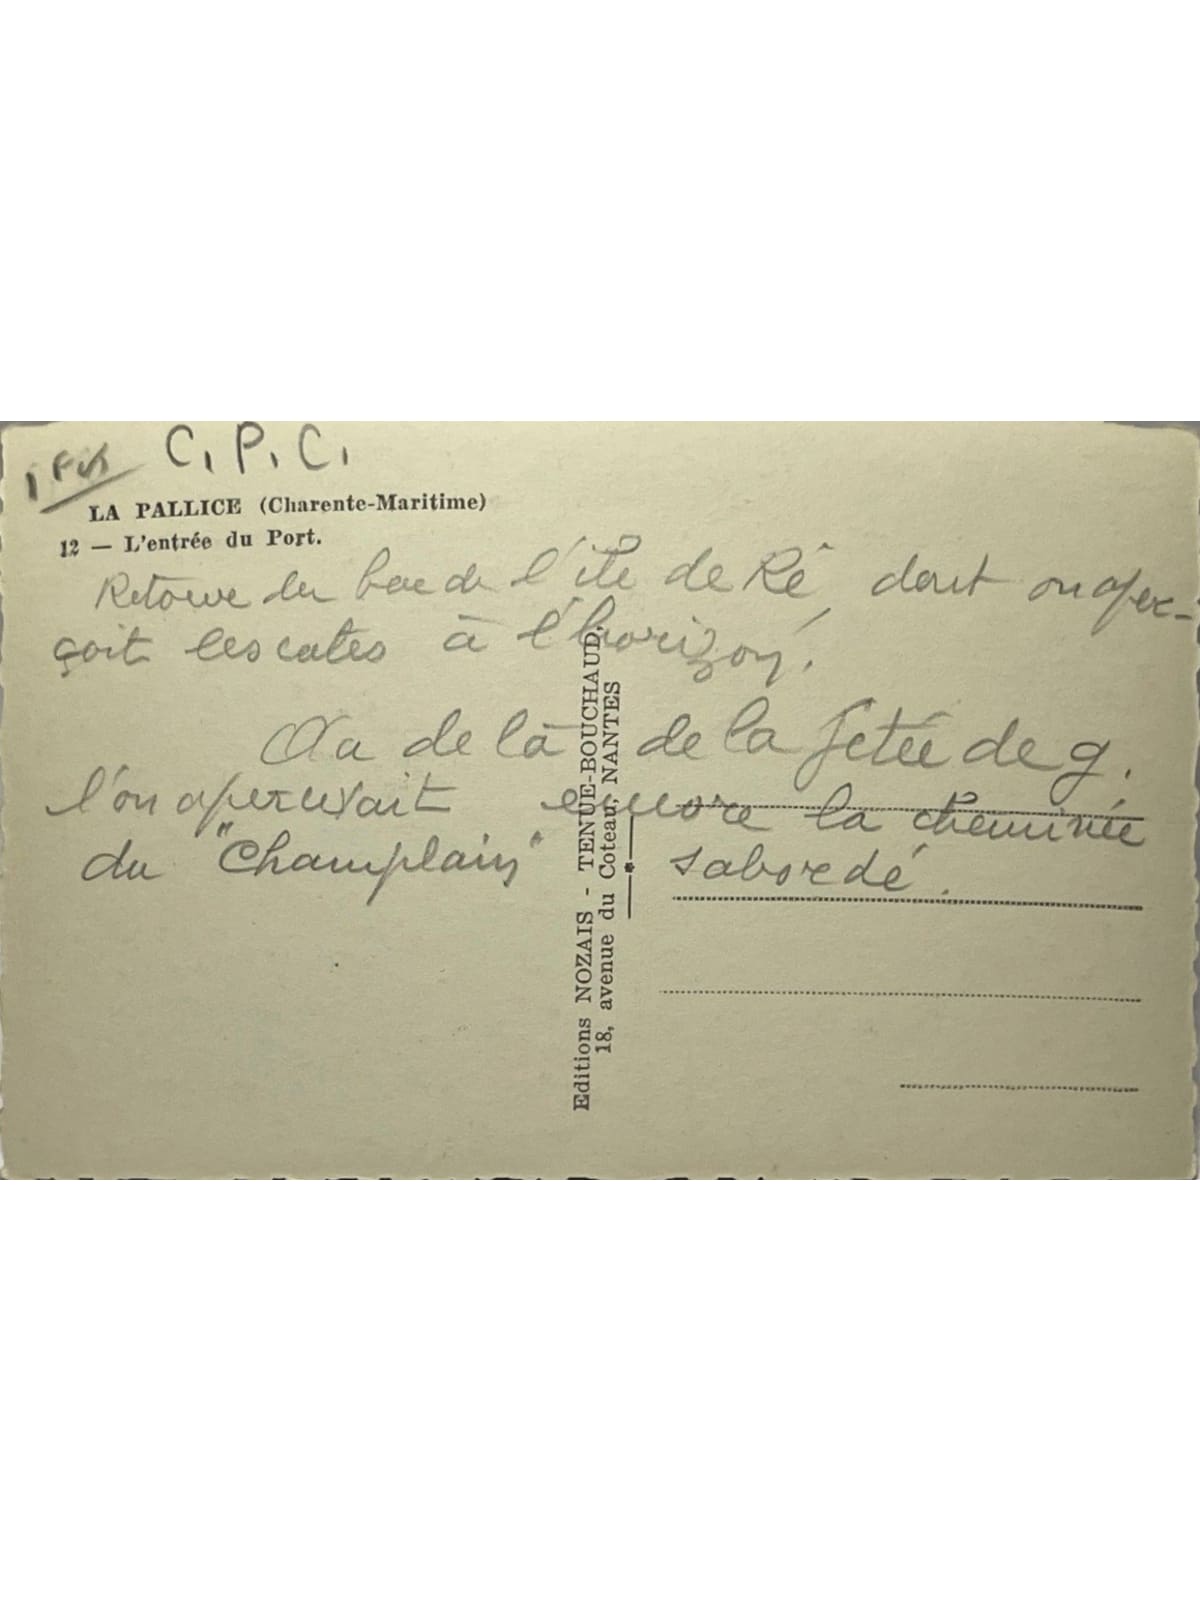 C. P. C.
LA PALLICE (Charente-Maritime)
12 — L'entrée du Port.
Retour du bac de l'île de Ré dont on aper-
çoit les cotes à l'horizon.
de là de la jetée de g.
l'on apercevait encore la cheminée
du "Champlain" sabordé.
Editions NOZAIS - TENUE-BOUCHAUD,
18, avenue du Coteau, NANTES